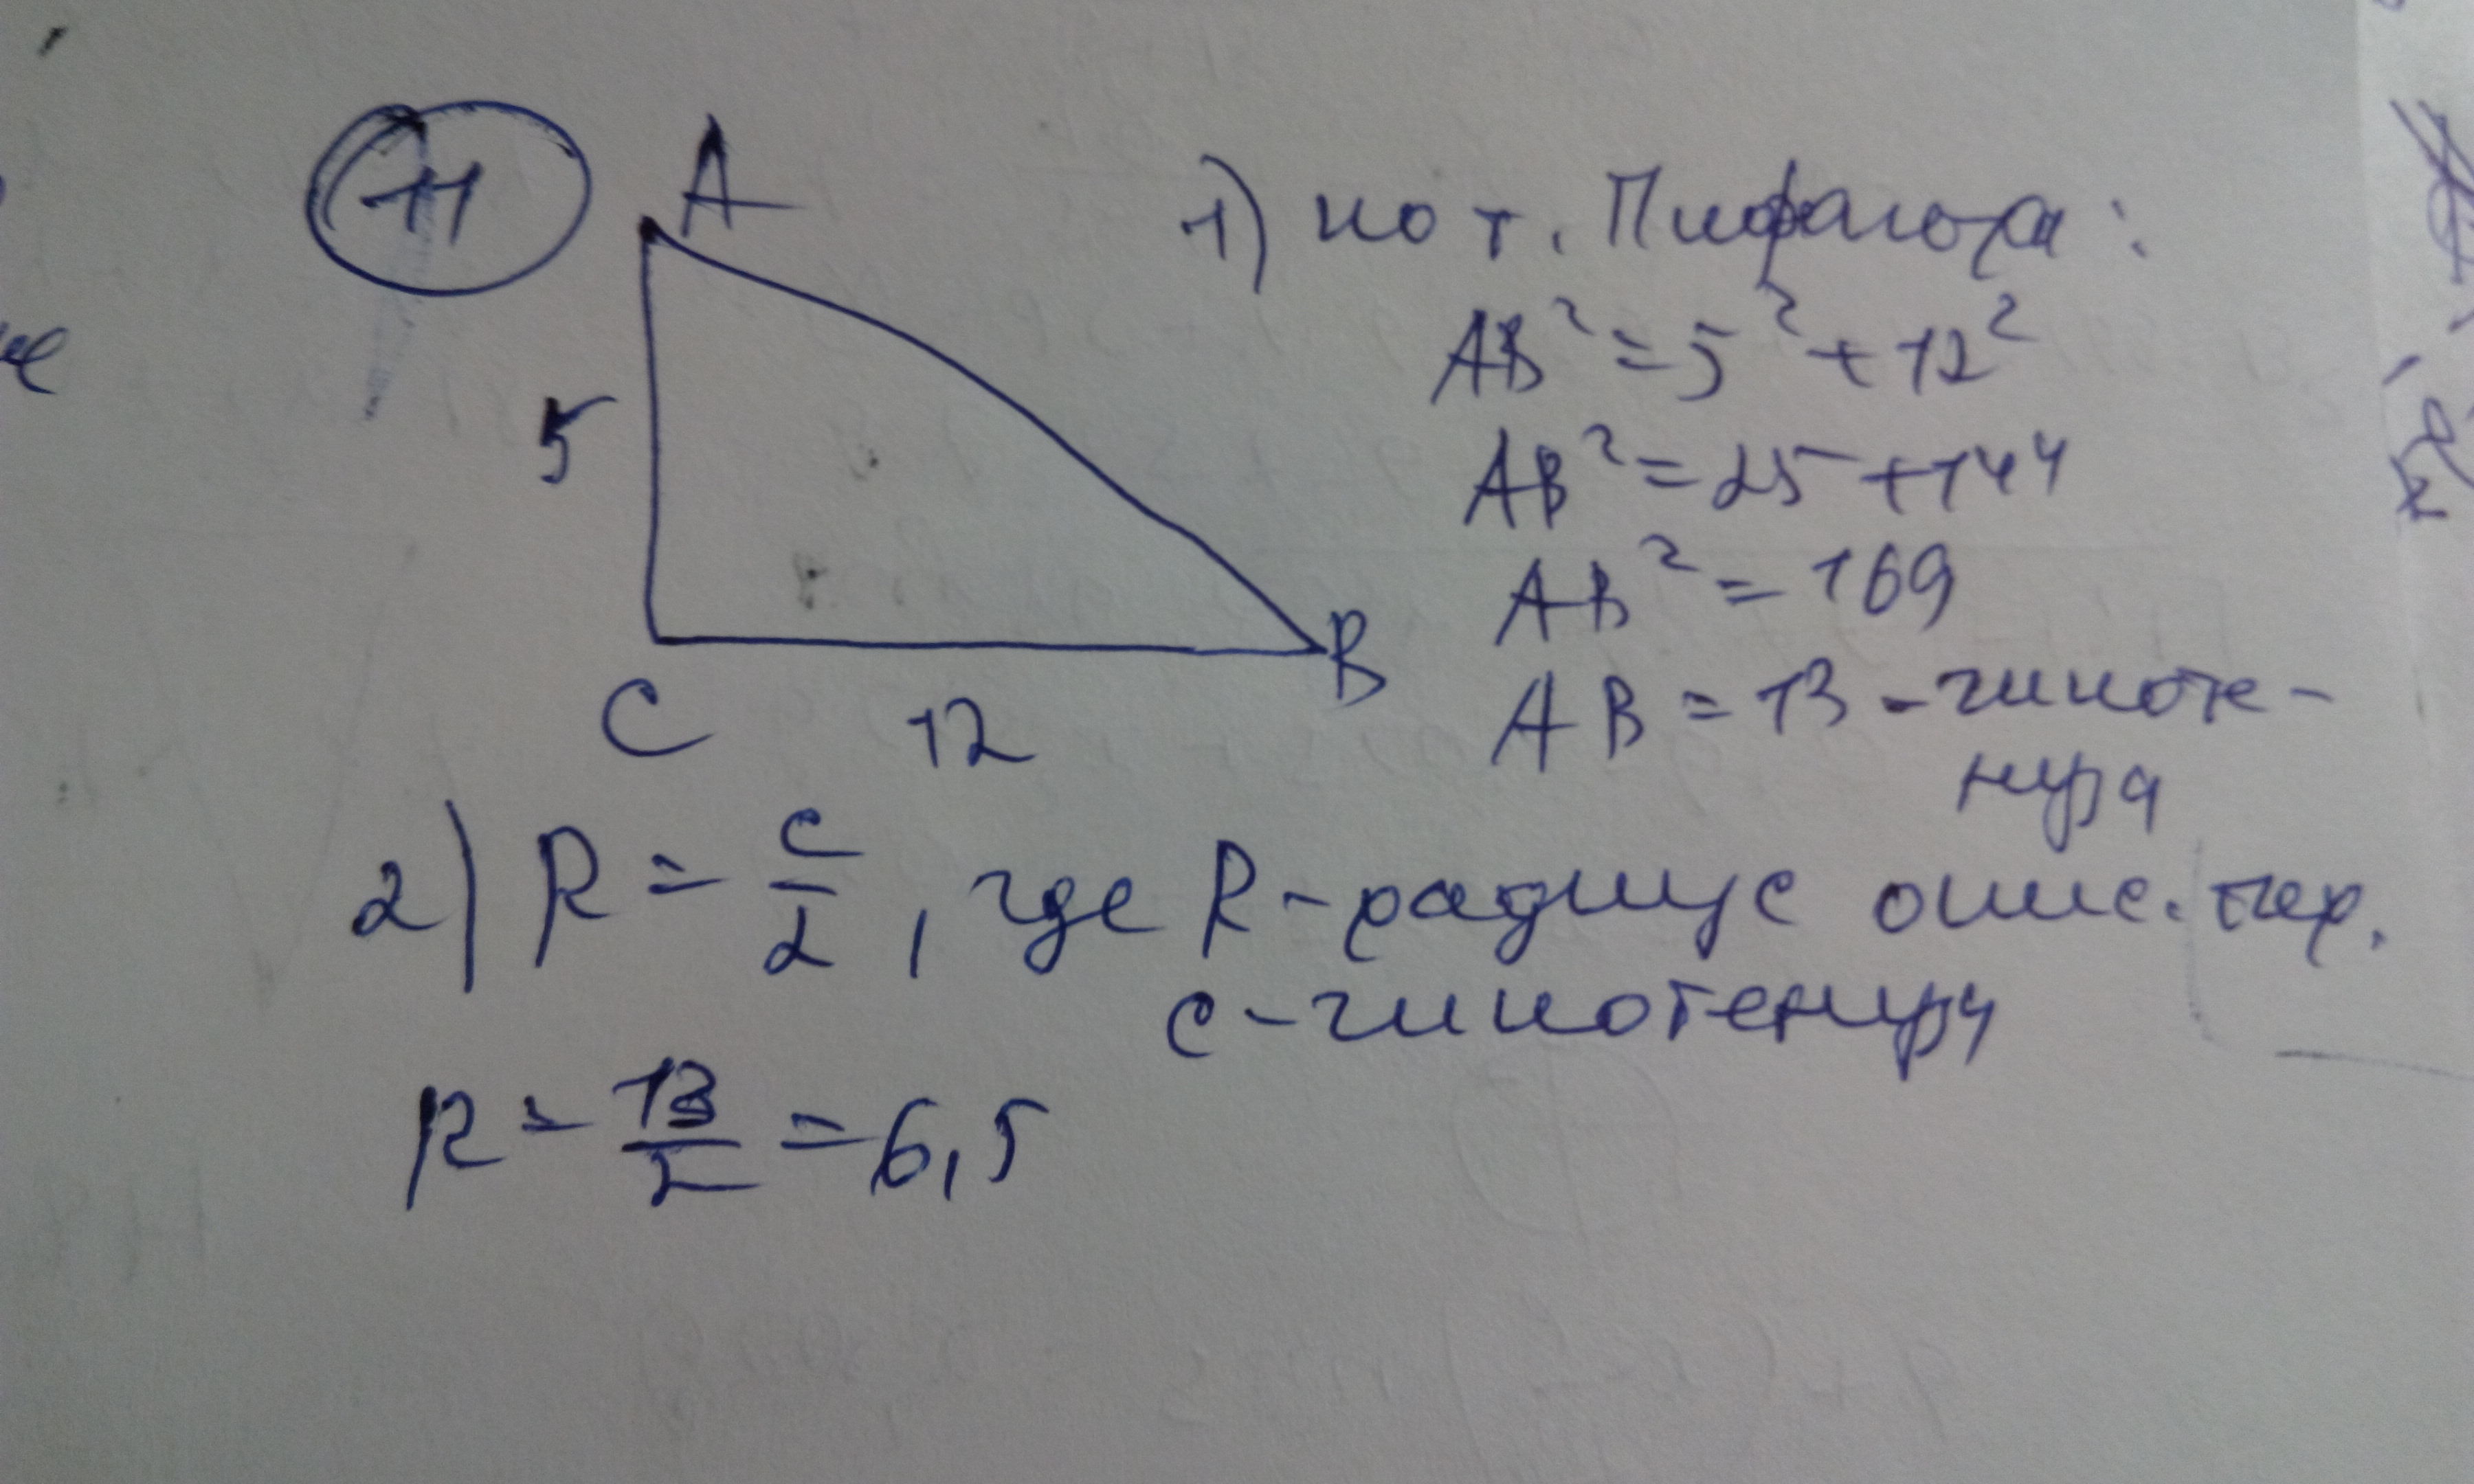 11
A
5
C
12
B
1) по т. Пифагора:
AB² = 5² + 12²
AB² = 25 + 144
AB² = 169
AB = 13 - гипоте-
нуза
2) R = c/2, где R - радиус опис. окр.
c - гипотенузы
R = 13/2 = 6,5